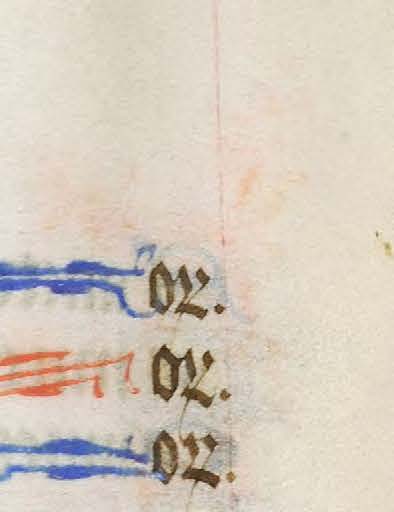 or.
or.
or.